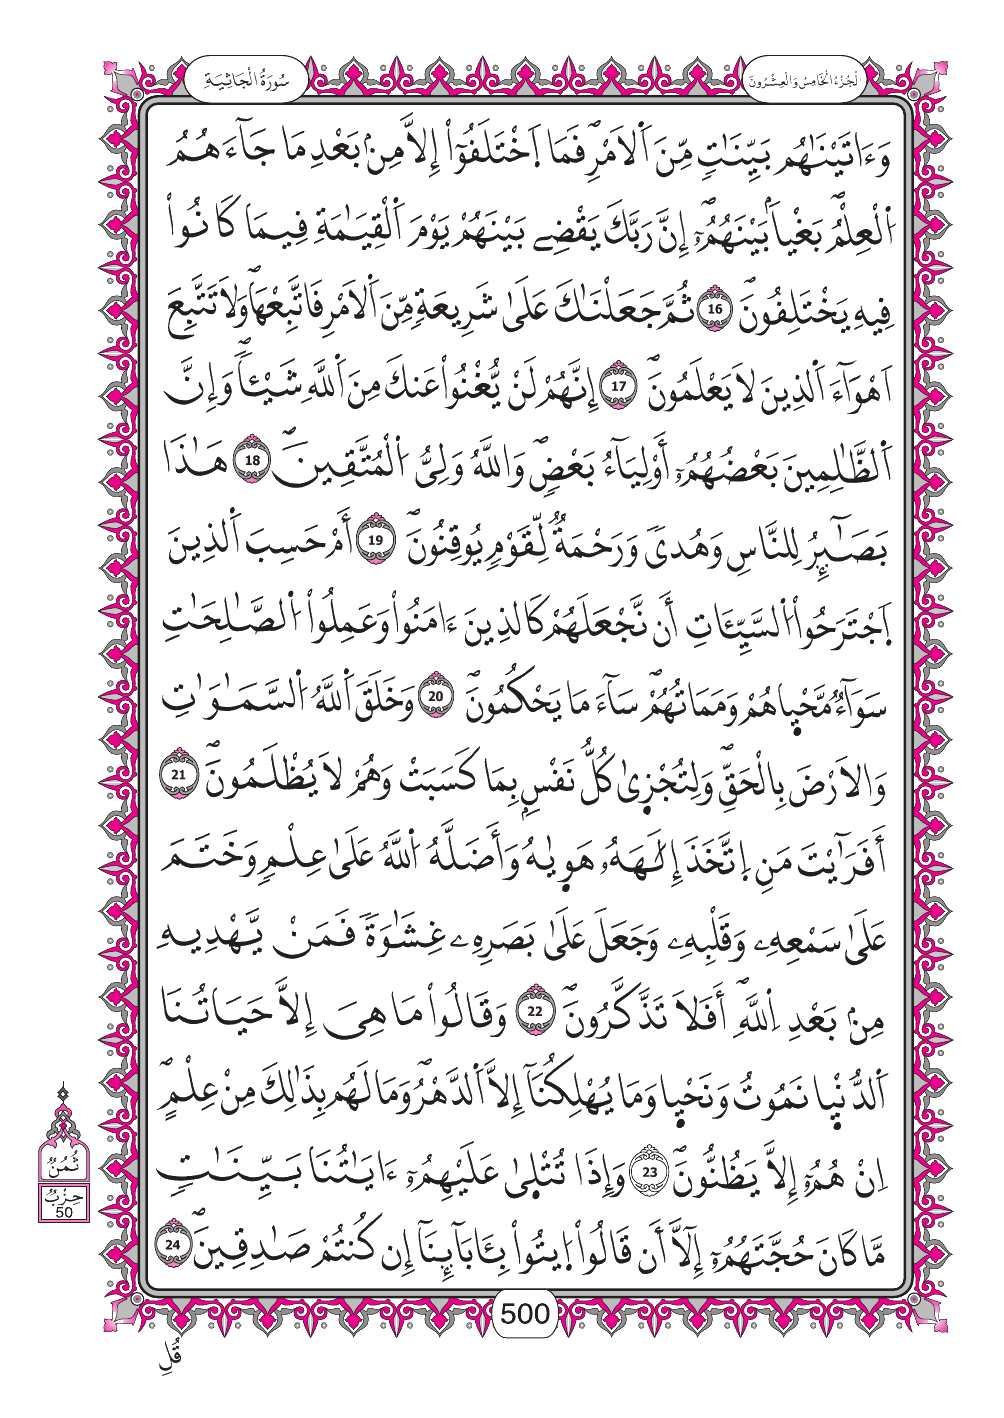 سُورَةُ الْجَاثِيَةِ
اَلْجُزْءُ الْخَامِسُ وَالْعِشْرُونَ
وَءَاتَيْنَٰهُم بَيِّنَٰتٖ مِّنَ اَلَامْرِۖ فَمَا اَ۪خْتَلَفُوٓاْ إِلَّا مِنۢ بَعْدِ مَا جَآءَهُمُ
اُ۬لْعِلْمُۖ بَغْياَۢ بَيْنَهُمُۥٓۖ إِنَّ رَبَّكَ يَقْضِے بَيْنَهُمْ يَوْمَ اَ۬لْقِيَٰمَةِ فِيمَا كَانُواْ
فِيهِ يَخْتَلِفُونَۖ 16 ثُمَّ جَعَلْنَٰكَ عَلَىٰ شَرِيعَةٖ مِّنَ اَ۬لَامْرِ فَاتَّبِعْهَاۖ وَلَا تَتَّبِعَ
اَهْوَآءَ اَ۬لذِينَ لَا يَعْلَمُونَۖ 17 إِنَّهُمْ لَنْ يُّغْنُواْ عَنكَ مِنَ اَ۬للَّهِ شَيْـٔاۖ وَإِنَّ
اَ۬لظَّٰلِمِينَ بَعْضُهُمُۥٓ أَوْلِيَآءُ بَعْضٖۖ وَاللَّهُ وَلِيُّ اُ۬لْمُتَّقِينَۖ 18 هَٰذَا
بَصَٰٓئِرُ لِلنَّاسِ وَهُدىٗ وَرَحْمَةٞ لِّقَوْمٖ يُوقِنُونَۖ 19 أَمْ حَسِبَ اَ۬لذِينَ
اَ۪جْتَرَحُواْ اُ۬لسَّيِّـَٔاتِ أَن نَّجْعَلَهُمْ كَالذِينَ ءَامَنُواْ وَعَمِلُواْ اُ۬لصَّٰلِحَٰتِ
سَوَآءٞ مَّحْي۪اهُمْ وَمَمَاتُهُمْۖ سَآءَ مَا يَحْكُمُونَۖ 20 وَخَلَقَ اَ۬للَّهُ اُ۬لسَّمَٰوَٰتِ
وَالَارْضَ بِالْحَقِّۖ وَلِتُجْز۪ىٰ كُلُّ نَفْسِۢ بِمَا كَسَبَتْ وَهُمْ لَا يُظْلَمُونَۖ 21
أَفَرَٰٓيْتَ مَنِ اِ۪تَّخَذَ إِلَٰهَهُۥ هَو۪يٰهُ وَأَضَلَّهُ اُ۬للَّهُ عَلَىٰ عِلْمٖ وَخَتَمَ
عَلَىٰ سَمْعِهِۦ وَقَلْبِهِۦ وَجَعَلَ عَلَىٰ بَصَرِهِۦ غِشَٰوَةٗ فَمَنْ يَّهْدِيهِ
مِنۢ بَعْدِ اِ۬للَّهِۖ أَفَلَا تَذَّكَّرُونَۖ 22 وَقَالُواْ مَا هِيَ إِلَّا حَيَاتُنَا
اَ۬لدُّنْي۪ا نَمُوتُ وَنَحْي۪ا وَمَا يُهْلِكُنَآ إِلَّا اَ۬لدَّهْرُۖ وَمَا لَهُم بِذَٰلِكَ مِنْ عِلْمٍۖ
اِنْ هُمُۥٓ إِلَّا يَظُنُّونَۖ 23 وَإِذَا تُتْل۪ىٰ عَلَيْهِمُۥٓ ءَايَٰتُنَا بَيِّنَٰتٖ
مَّا كَانَ حُجَّتَهُمُۥٓ إِلَّآ أَن قَالُواْ اُ۪يتُواْ بِـَٔابَآئِنَآ إِن كُنتُمْ صَٰدِقِينَۖ 24
ثُمُنُ
حِزْبٌ
50
500
قُلِ